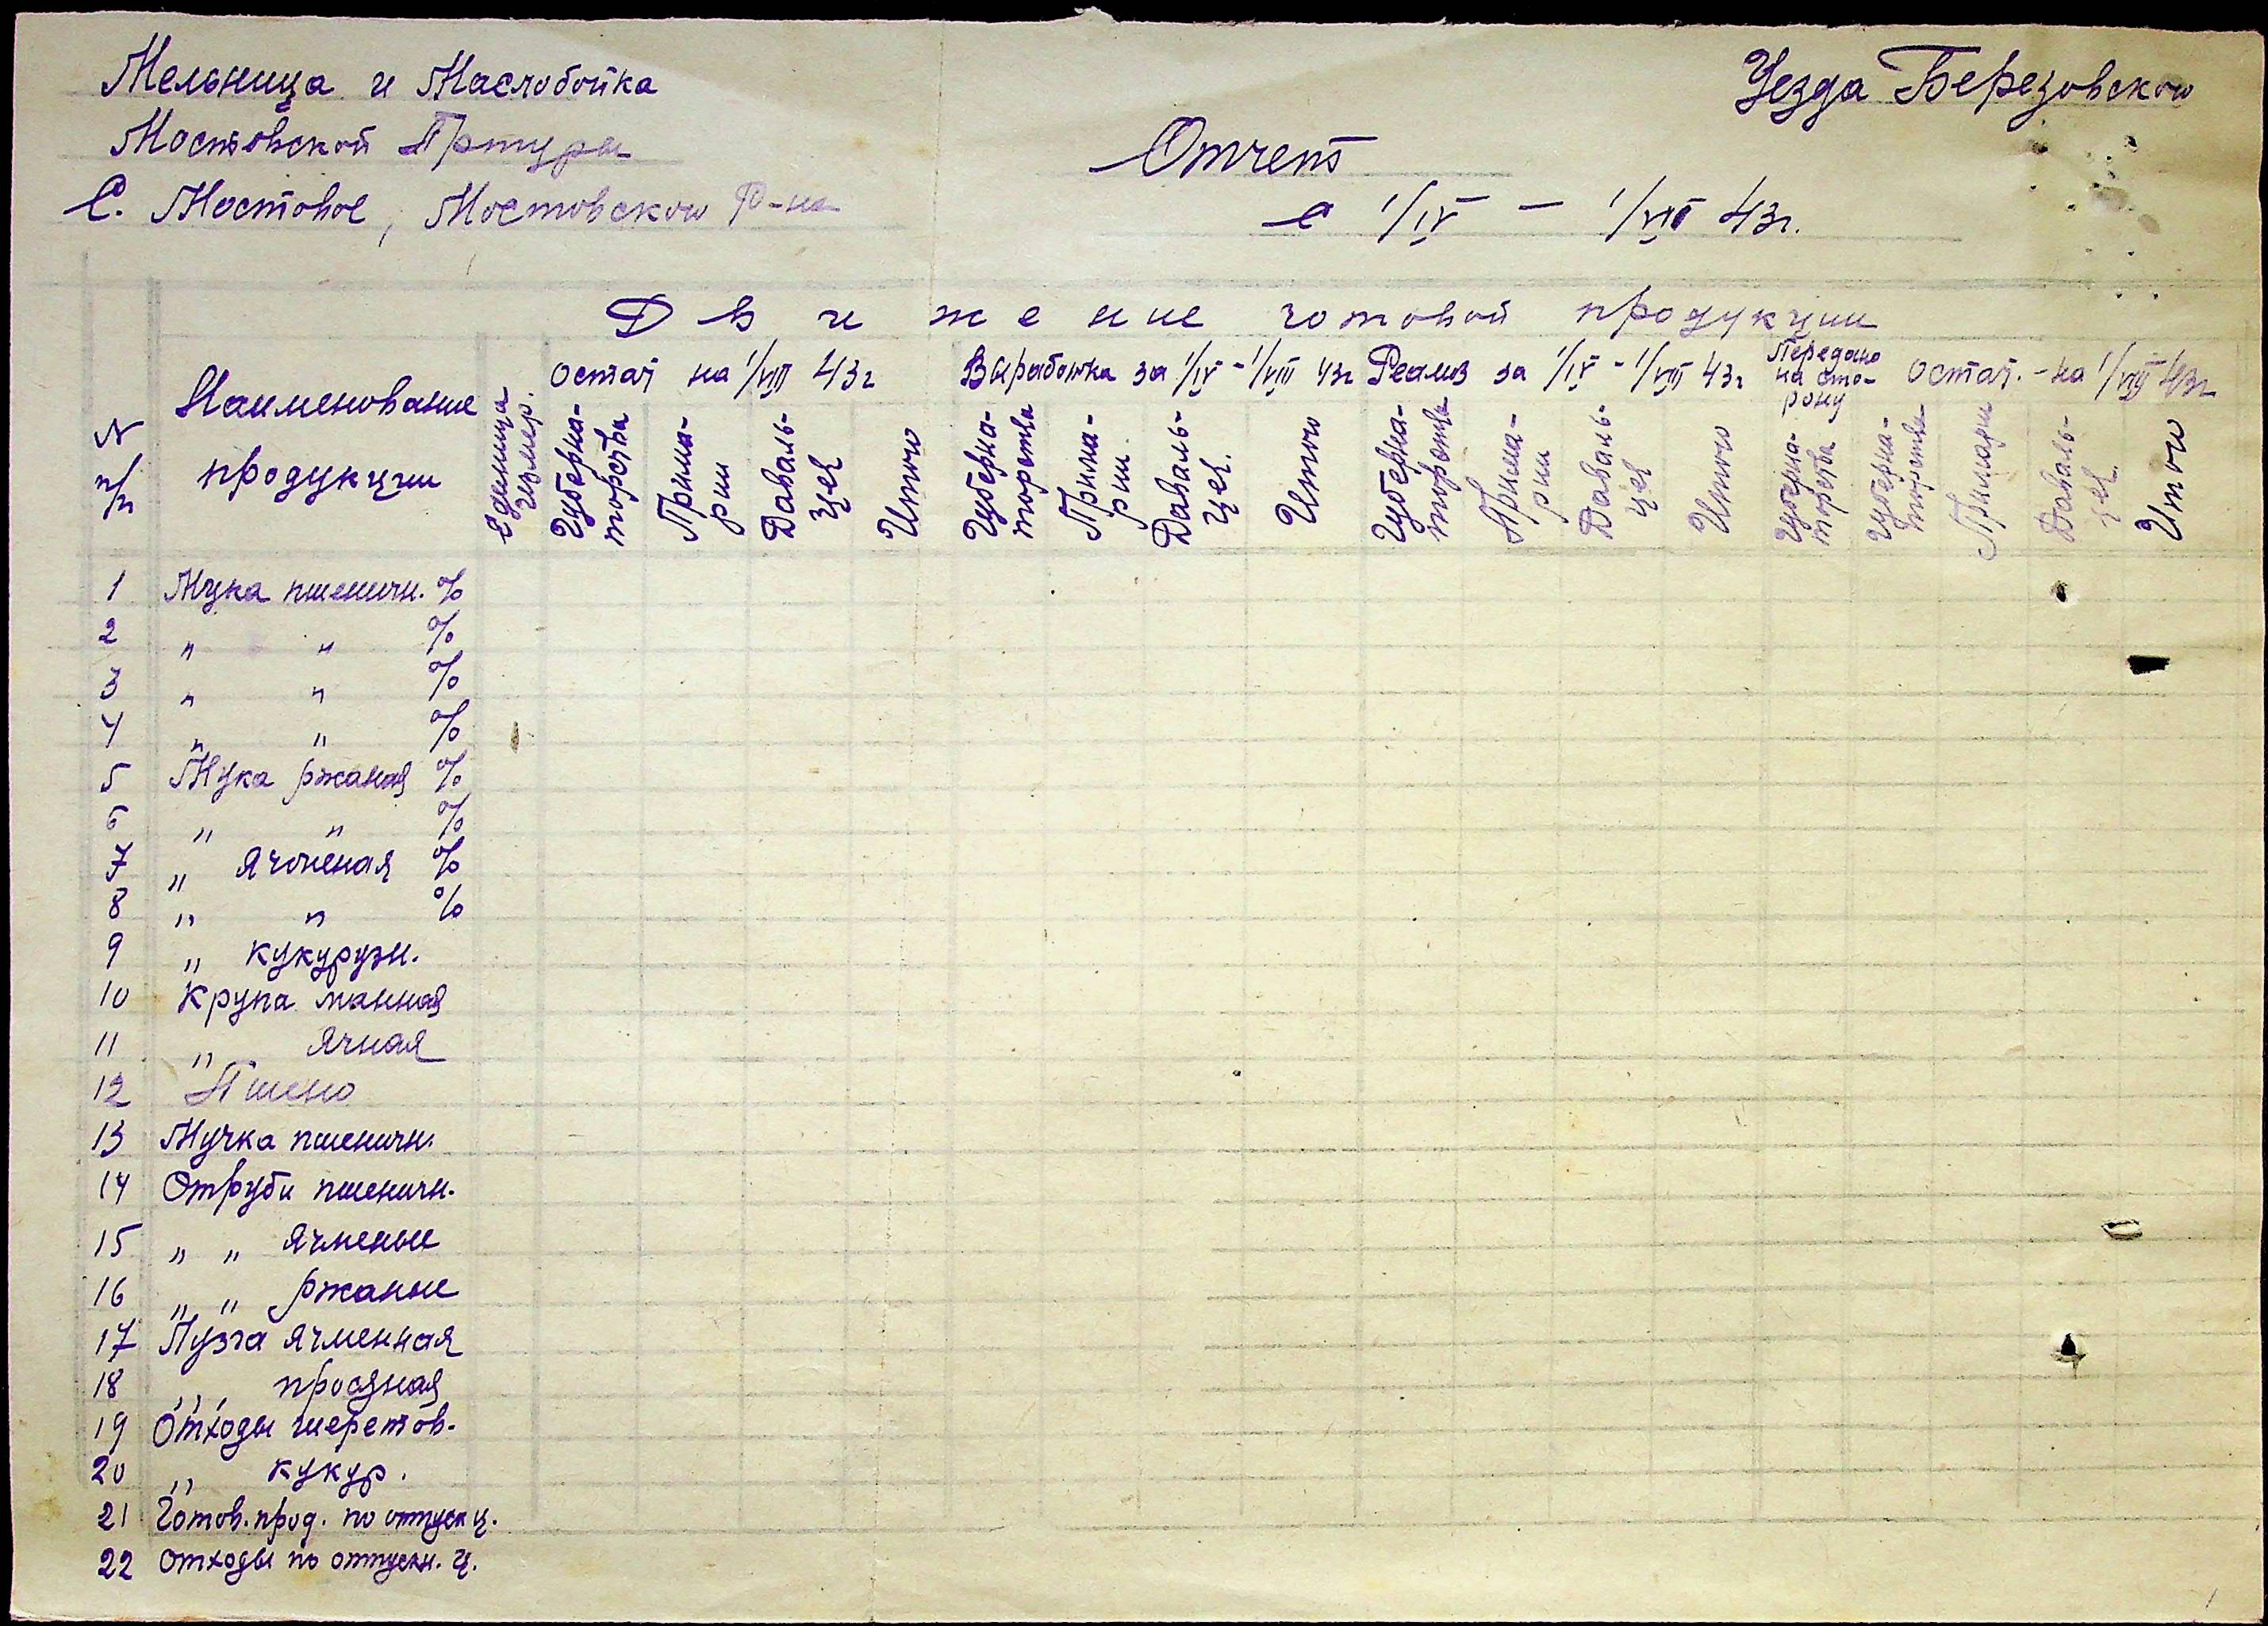 Мельница и Маслобойка
Мостовской Пртуры
С. Мостовое, Мостовского Р-на
Уезда Березовского
Отчет
с 1/IV — 1/VIII 43г.
Движение готовой продукции
N п/п
Наименование продукции
Единица измер.
Остат на 1/VIII 43г
Выработка за 1/IV - 1/VIII 43г
Реализ за 1/IV - 1/VIII 43г
Передано на сторону
Остат. - на 1/VIII 43г
Губерна-торства
Прима-рии
Даваль-цев
Итого
Губерна-торства
Прима-рии
Даваль-цев.
Итого
Губерна-торства
Прима-рии
Даваль-цев
Итого
Губерна-торства
Губерна-торства
Примари
Даваль-цев.
Итого
1 Мука пшеничн. %
2 " " %
3 " " %
4 " " %
5 Мука ржаная %
6 " " %
7 " Ячменая %
8 " " %
9 " кукурузн.
10 Крупа манная
11 " Ячная
12 Пшено
13 Мучка пшеничн.
14 Отруби пшеничн.
15 " " Ячменые
16 " " ржаные
17 Лузга Ячменная
18 " просяная
19 Отходы шеретов.
20 " кукур.
21 Готов. прод. по отпуск ц.
22 Отходы по отпускн. ц.